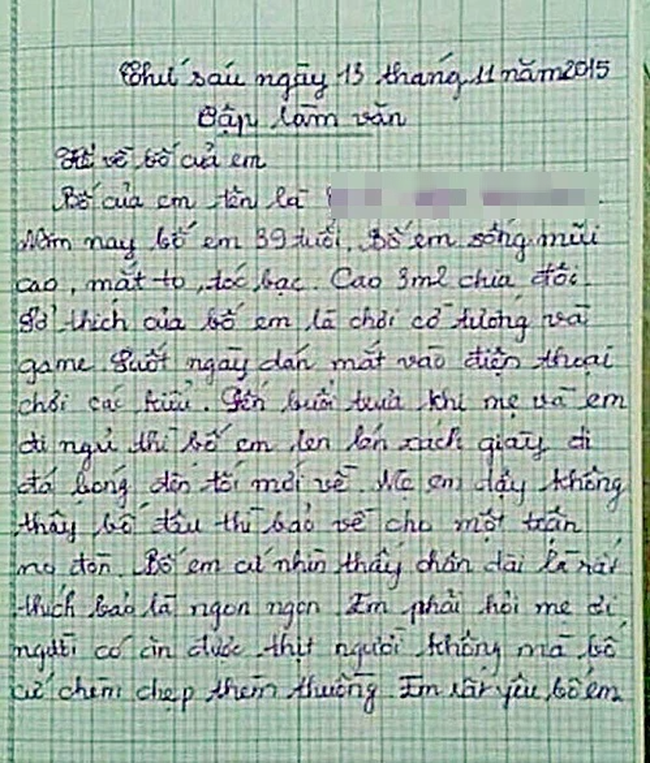 Thứ sáu ngày 13 tháng 11 năm 2015
Tập làm văn
Kể về bố của em
Bố của em tên là
Năm nay bố em 39 tuổi. Bố em sống mũi
cao, mắt to, tóc bạc. Cao 3m2 chia đôi.
Sở thích của bố em là chơi cờ tướng và
game. Suốt ngày dán mắt vào điện thoại
chơi các kiểu. Đến buổi trưa khi mẹ và em
đi ngủ thì bố em len lén xách giày đi
đá bóng đến tối mới về. Mẹ em dậy không
thấy bố đâu thì bảo về cho một trận
no đòn. Bố em cứ nhìn thấy chân dài là rất
thích bảo là ngon ngon. Em phải hỏi mẹ đi
người có ăn được thịt người không mà bố
cứ chem chẹp thèm thuồng. Em rất yêu bố em